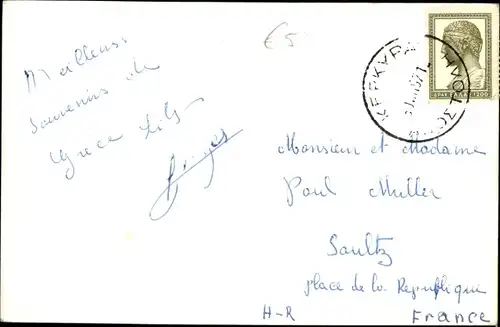 € 5
Meilleurs
Souvenirs de
Grèce
ΚΕΡΚΥΡΑ
Monsieur et Madame
Paul Muller
Soultz
place de la Republique
H-R France